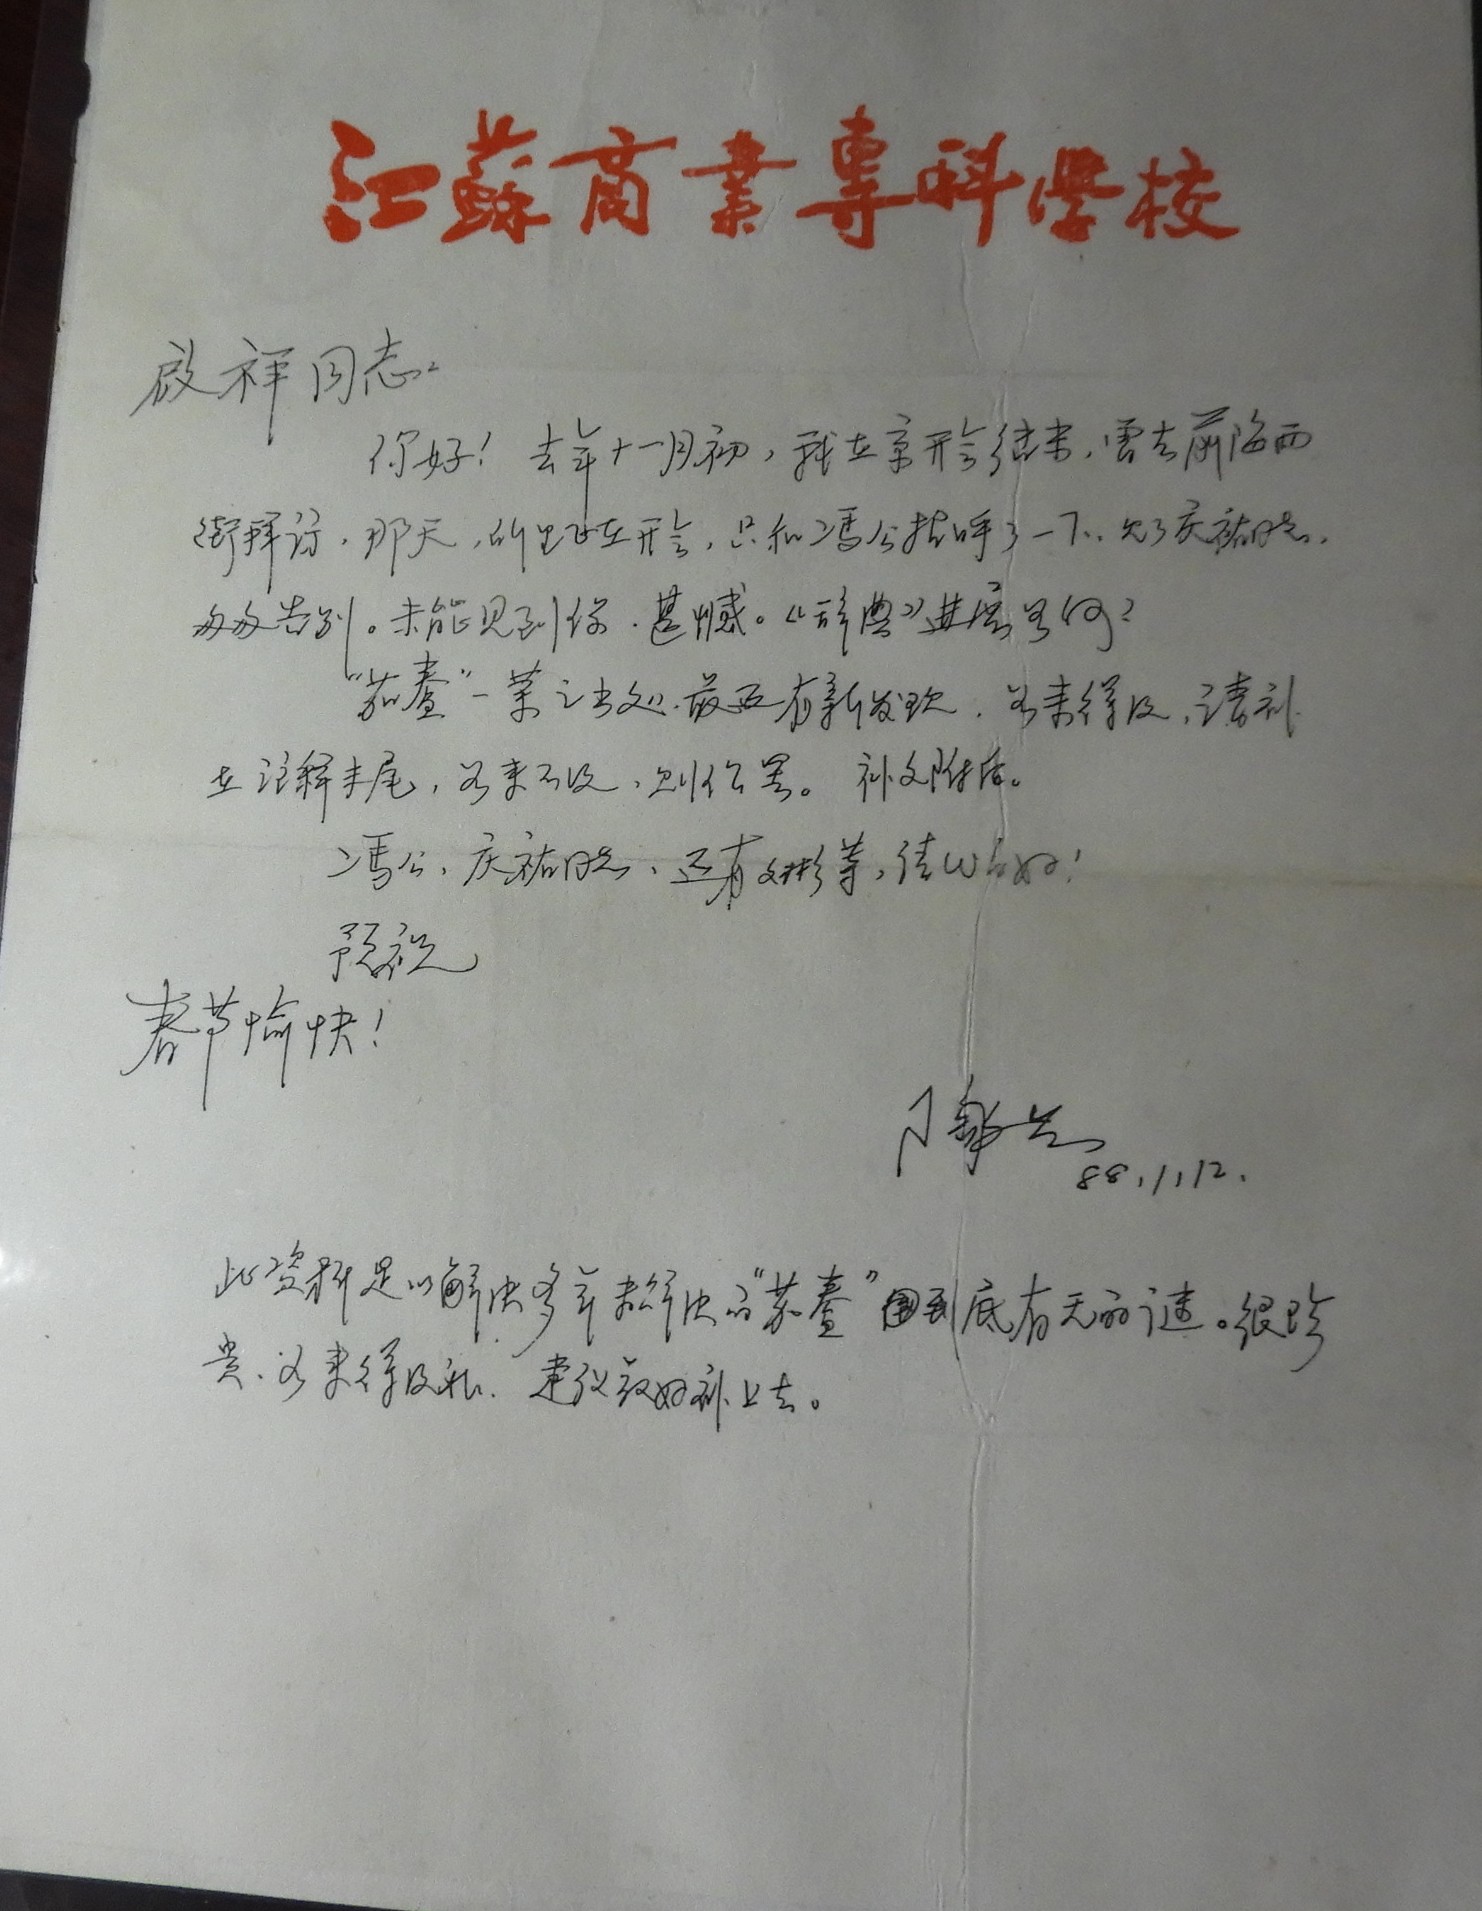 江蘇商業專科學校
启祥同志:
你好！去年十一月初，我在京开会结束，曾去前海西
街拜访，那天，所里正在开会，只和冯公招呼了一下，见了庆祐同志，
匆匆告别。未能见到你，甚憾。《辞典》进展如何？
“茄鲞”一菜之出处，最近有新发现，如来得及，请补
在注释末尾，如来不及，则作罢。补文附后。
冯公、庆祐同志、还有文彬等，请代问好！
预祝
春节愉快！
陶
88.1.12.
此资料足以解决多年未解决的“茄鲞”到底有无的谜。很珍
贵，如来得及，建议最好补上去。